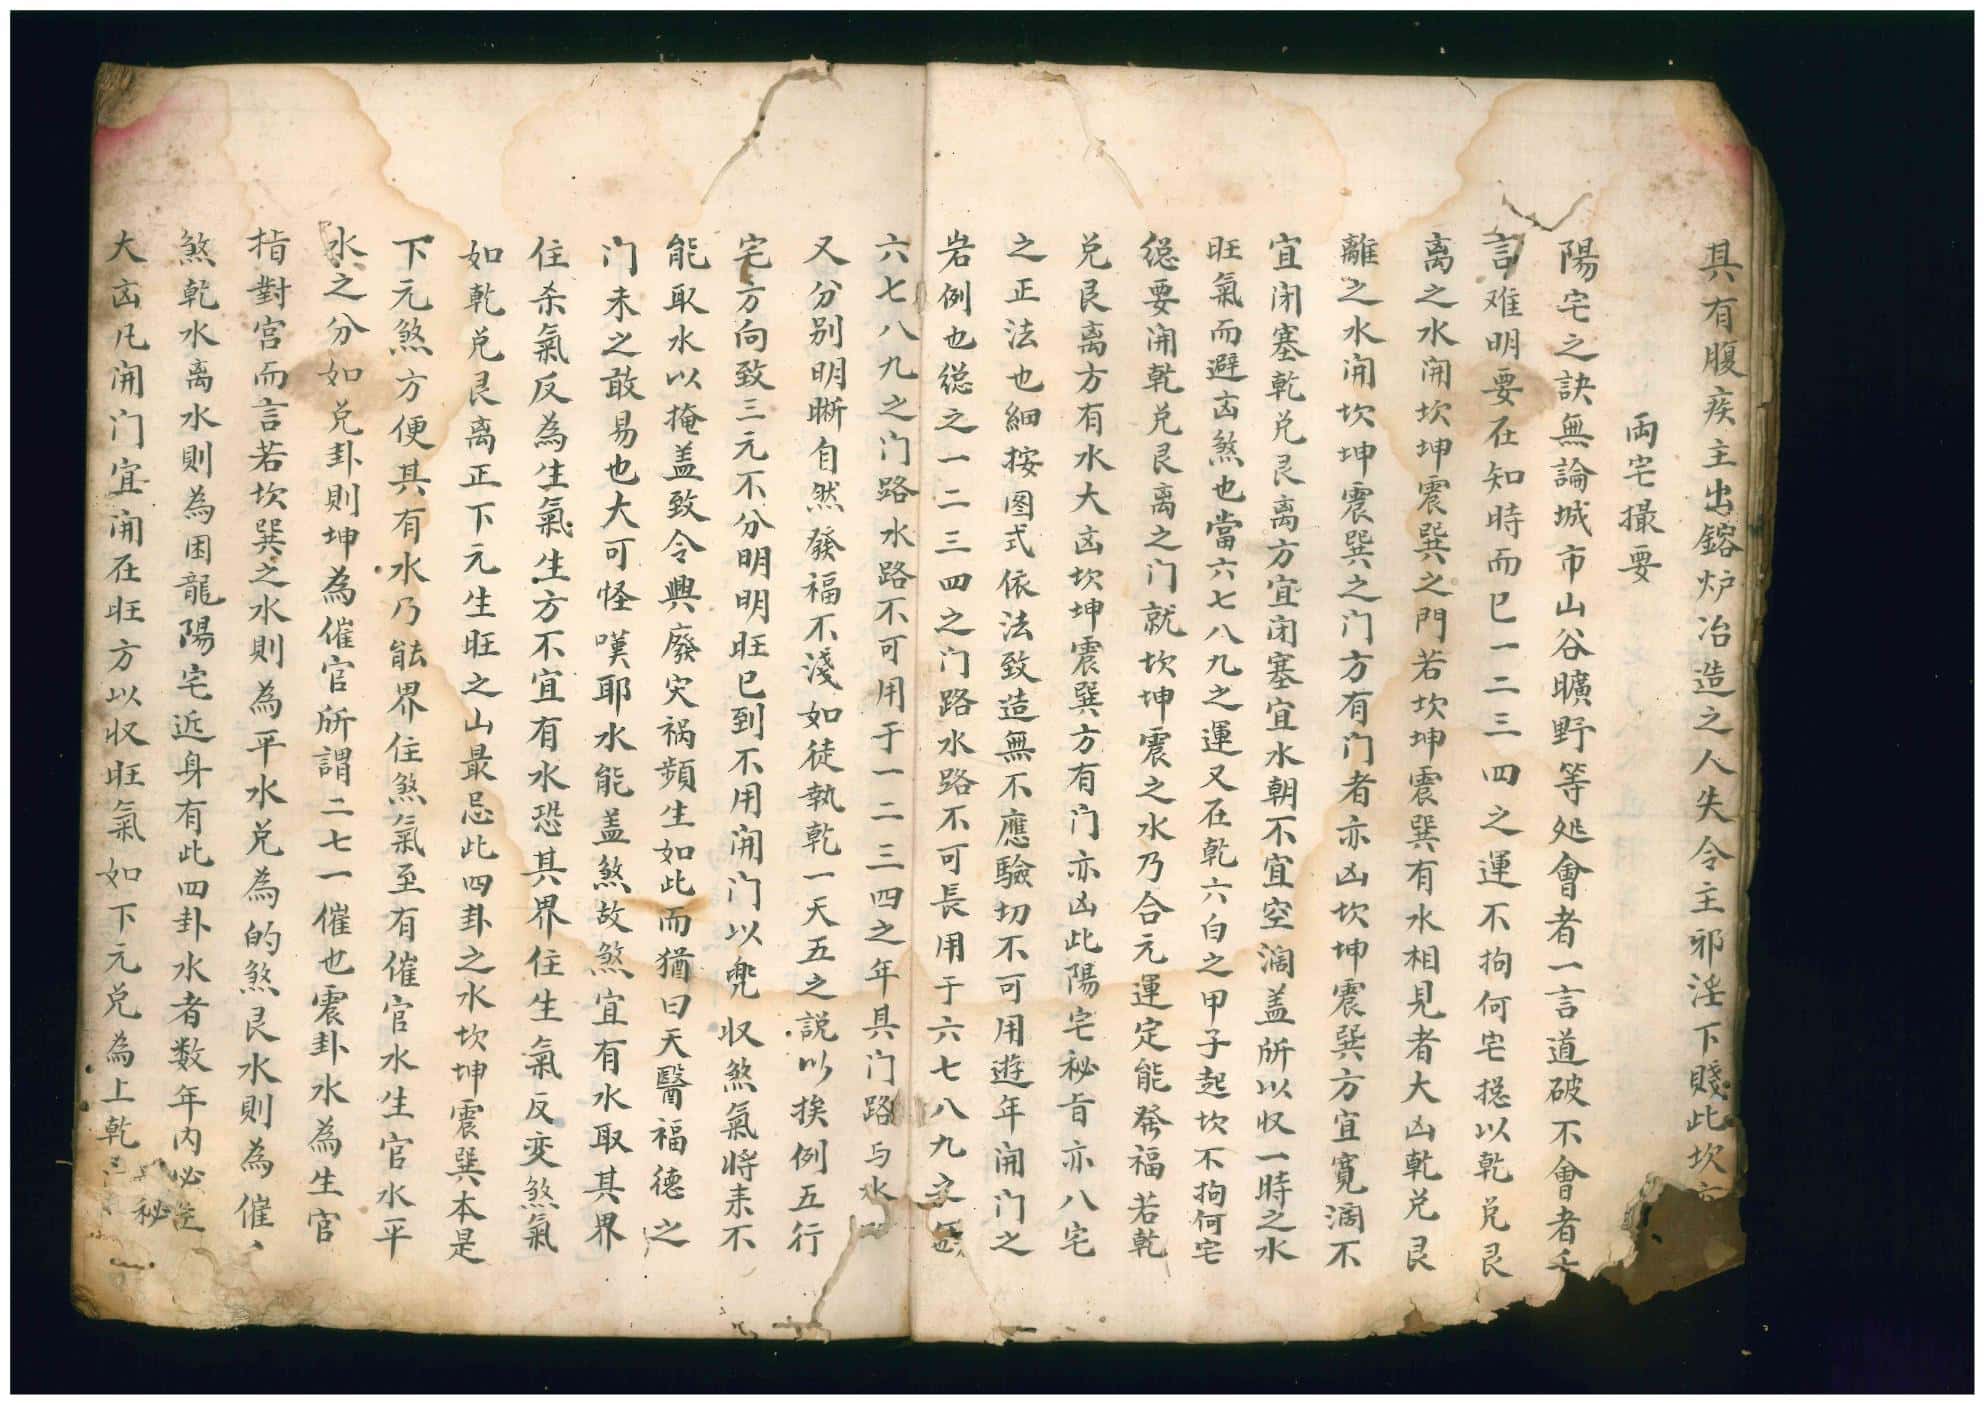 具有腹疾主出鎔炉冶造之人失令主邪淫下賤此坎
両宅撮要
陽宅之訣無論城市山谷曠野等处會者一言道破不會者千
言难明要在知時而已一二三四之運不拘何宅摠以乾兑艮
离之水開坎坤震巽之門若坎坤震巽有水相見者大凶乾兑艮
離之水開坎坤震巽之门方有门者亦凶坎坤震巽方宜寬濶不
宜闭塞乾兑艮离方宜闭塞宜水朝不宜空濶盖所以収一時之水
旺氣而避凶煞也當六七八九之運又在乾六白之甲子起坎不拘何宅
縂要開乾兑艮离之门就坎坤震之水乃合元運定能發福若乾
兑艮离方有水大凶坎坤震巽方有门亦凶此陽宅秘旨亦八宅
之正法也細按图式依法致造無不應驗切不可用遊年開门之
岩例也縂之一二三四之门路水路不可長用于六七八九之
六七八九之门路水路不可用于一二三四之年具门路与水
又分别明晰自然發福不淺如徒執乾一天五之説以挨例五行
宅方向致三元不分明明旺已到不用開门以兜収煞氣将来不
能取水以掩盖致令興廢灾祸頻生如此而猶曰天醫福德之
门未之敢易也大可怪嘆耶水能盖煞故煞宜有水取其界
住杀氣反為生氣生方不宜有水恐其界住生氣反变煞氣
如乾兑艮离正下元生旺之山最忌此四卦之水坎坤震巽本是
下元煞方便其有水乃能界住煞氣至有催官水生官水平
水之分如兑卦則坤為催官所謂二七一催也震卦水為生官
指對宫而言若坎巽之水則為平水兑為的煞艮水則為催、
煞乾水离水則為困龍陽宅近身有此四卦水者数年内必
大凶凡開门宜開在旺方以収旺氣如下元兑為上乾
秘